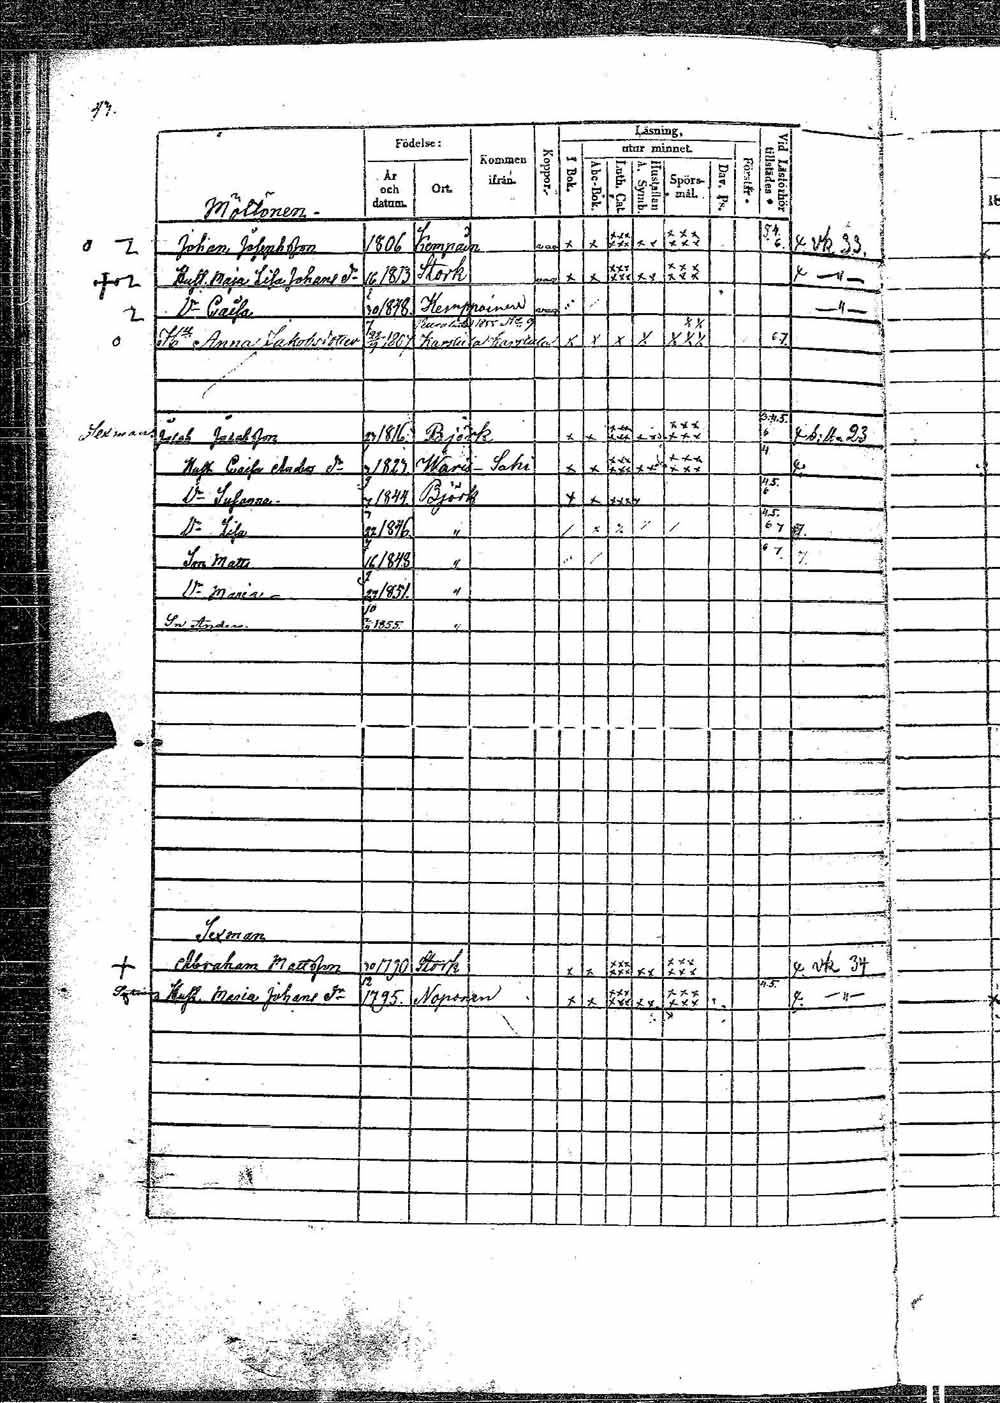 Läsning,
Födelse:
utur minnet.
År och datum.
Ort.
Kommen ifrån.
Koppor.
I Bok.
Abc-Bok.
Luth. Cat.
Hustaflan A. Symb.
Spörsmål.
Dav. Ps.
Förstår.
Vid Läsförhör tillstädes
Möttönen.
o Johan Josephsson 1806 Kempain x x xxx xxx x x xxx xxx 5.4. 6. 4 vk 33.
Hust. Maja Lisa Johans Dr 16 1813 Stork x x xxx xxx x x xxx xxx 4 —"—
Dr Caisa 30 1848. Kemppainen —"—
o Anna Jakobsdotter 1807 Karstula x x x x x x x 67.
Sexman Josef Josefsson 23 1816. Björk x x xxx xxx x x xxx xxx 6 23
Hust. Caisa Anders Dr 1823 Waris-Sahi x x xxx xxx x x xxx xxx 4
Dr Susanna 7 1844 Björk x x xxxx 4.5. 6
Dr Lisa 22 1846. " / x 4.5. 6 7
Son Matts 16 1848 " 6 7. 7.
Dr Maria 27 1851. "
Sn Anders. 1855. "
Sexman
+ Abraham Mattsson 30 1790 Stork x x xxx xxx x x xxx xxx 4. vk 34
Hust. Maria Johans Dr 12 1795. Noponen x x xxx xxx x x xxx xxx 4.5. 4. —"—